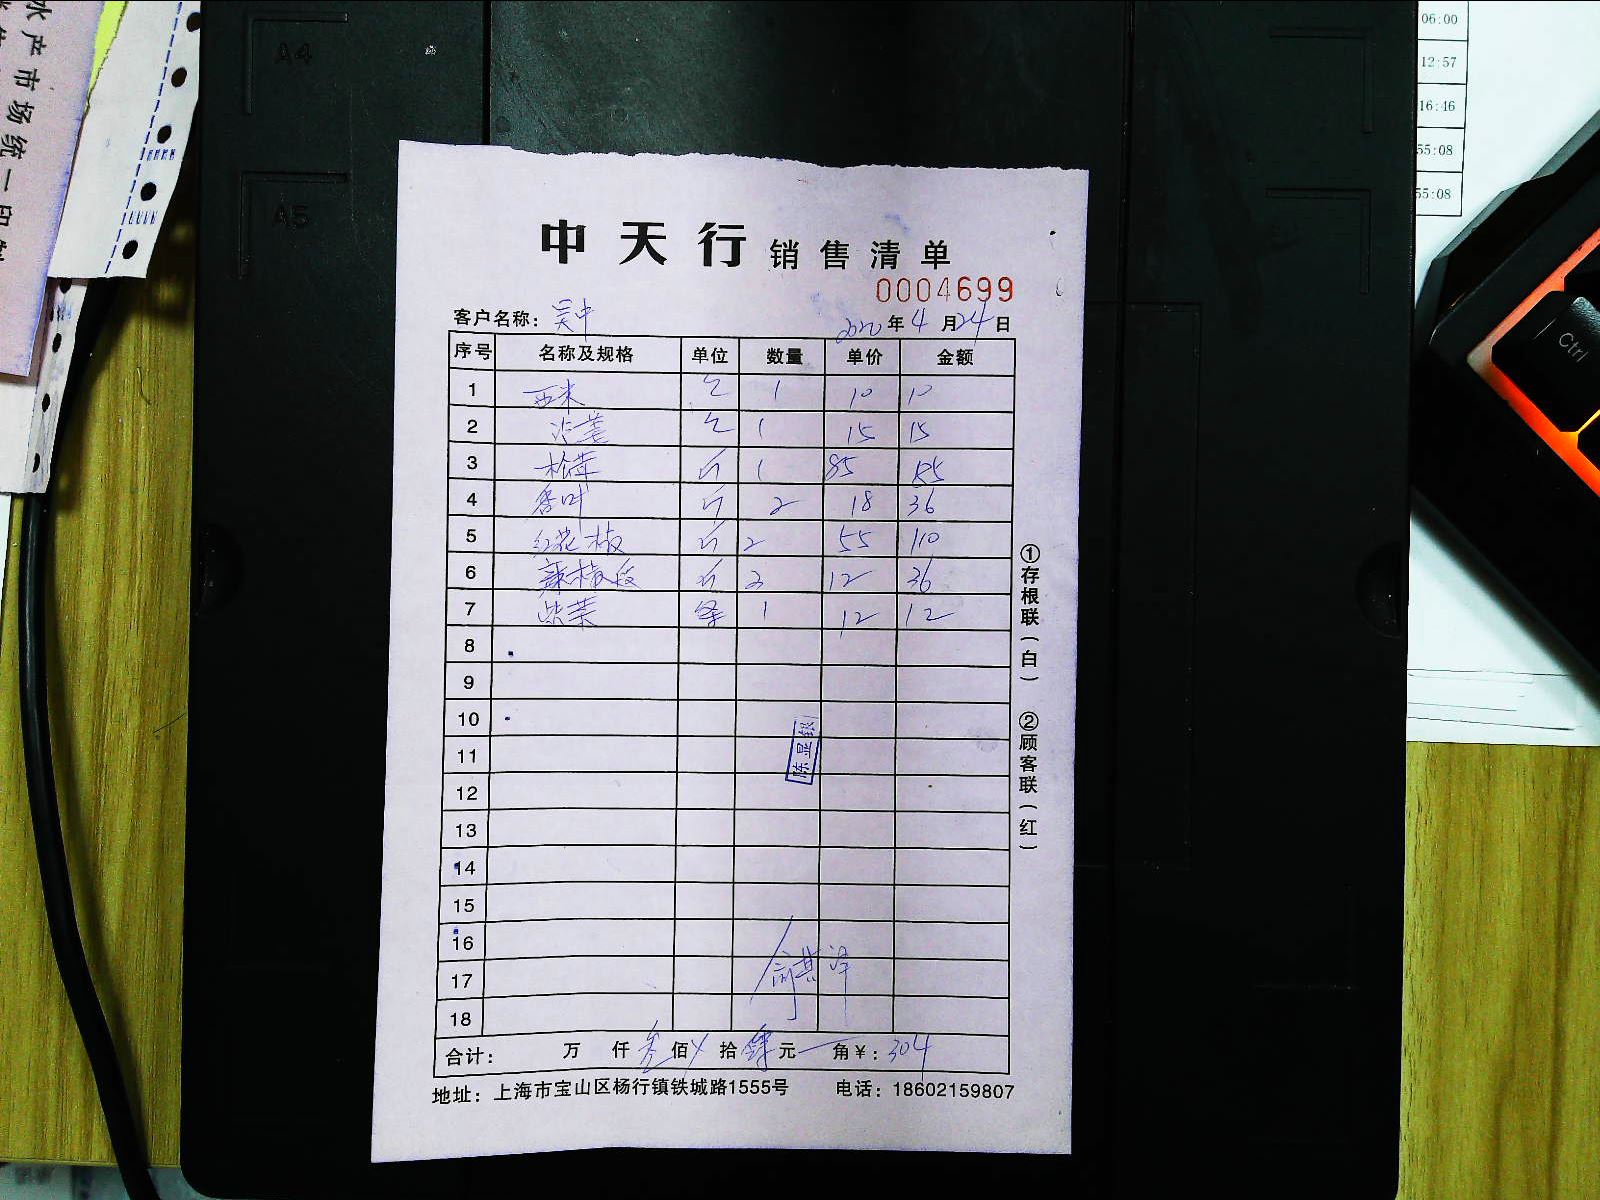 水产市场统一印
A4
A5
06:00
12:57
16:46
55:08
55:08
Ctrl
中天行 销售清单
0004699
客户名称: 吴中 2020年4月24日
序号 名称及规格 单位 数量 单价 金额
1 西米 包 1 10 10
2 沙姜 包 1 15 15
3 斤 1 85 85
4 香叶 斤 2 18 36
5 红花椒 斤 2 55 110
6 辣椒段 斤 3 12 36
7 紫菜 1 12 12
8
9
10
11
12
13
14
15
16
17
18
陈显银
合计: 万 仟 叁佰 拾 肆元 角¥: 304
地址: 上海市宝山区杨行镇铁城路1555号 电话: 18602159807
①存根联(白) ②顾客联(红)